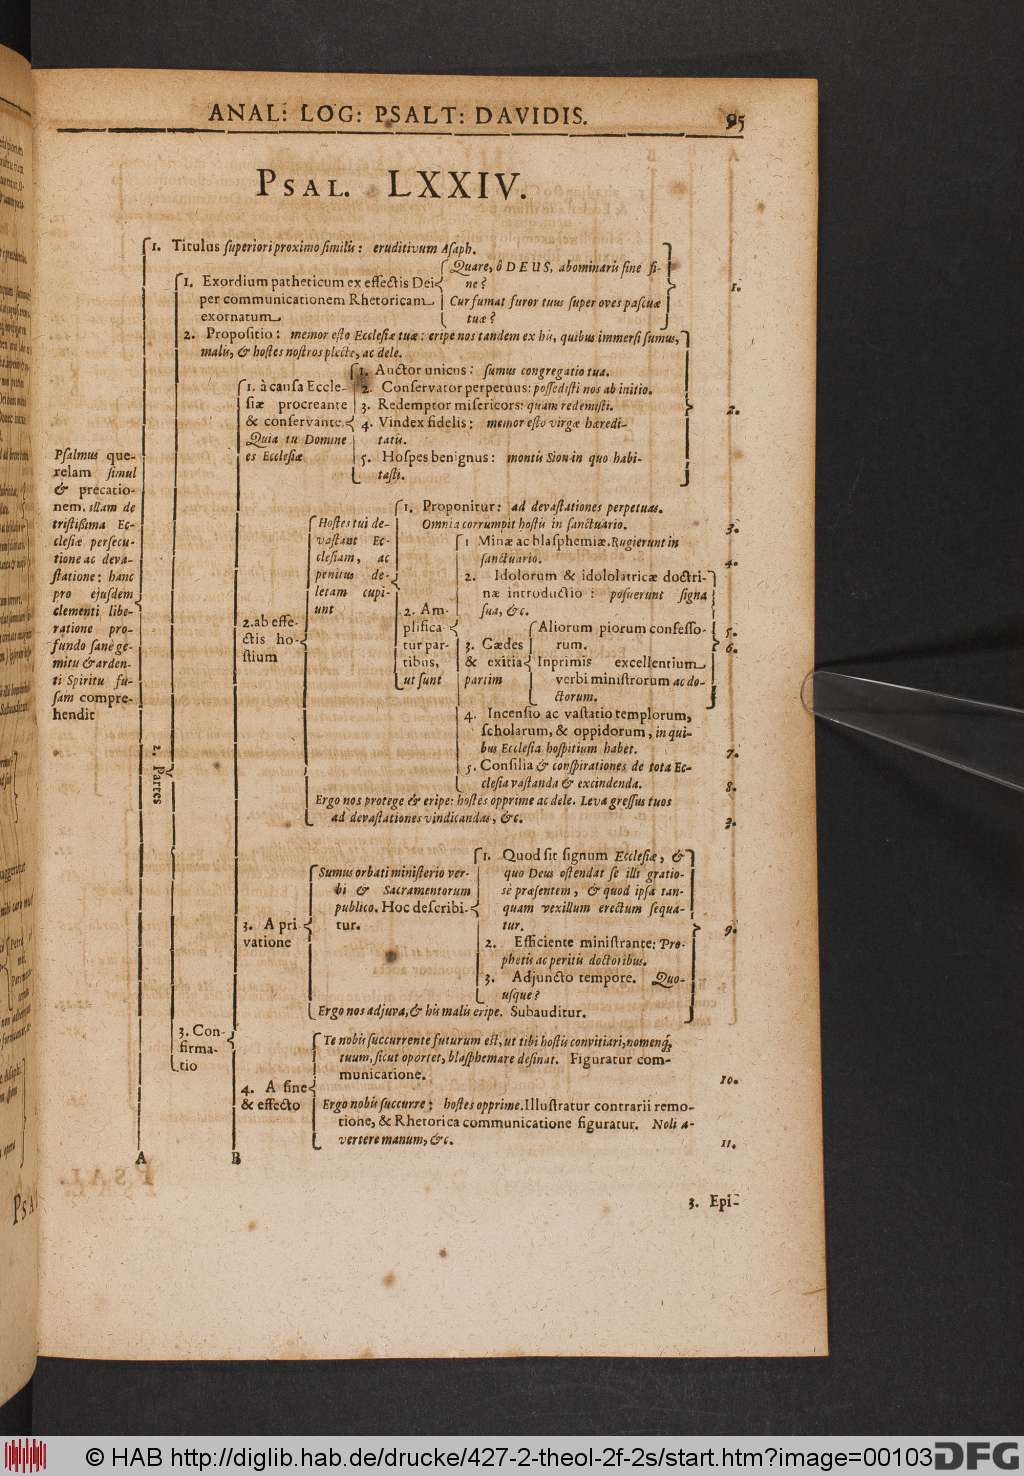 ANAL: LOG: PSALT: DAVIDIS. 95
PSAL. LXXIV.
Psalmus que-
relam simul
& precatio-
nem, illam de
tristißima Ec-
clesiæ persecu-
tione ac deva-
statione: hanc
pro ejusdem
clementi libe-
ratione pro-
fundo sanè ge-
mitu & arden-
ti Spiritu fu-
sam compre-
hendit
1. Titulus superiori proximo similis: eruditivum Asaph.
2. Partes
1. Exordium patheticum ex effectis Dei
per communicationem Rhetoricam
exornatum
Quare, ô DEUS, abominaris sine fi-
ne?
Cur fumat furor tuus super oves pascuæ
tuæ?
1.
2. Propositio: memor esto Ecclesiæ tuæ: eripe nos tandem ex his, quibus immersi sumus,
malis, & hostes nostros plecte, ac dele.
3. Con-
firma-
tio
1. à causa Eccle-
siæ procreante
& conservante.
Quia tu Domine
es Ecclesiæ
1. Auctor unicus: sumus congregatio tua.
2. Conservator perpetuus: possedisti nos ab initio.
3. Redemptor misericors: quam redemisti.
4. Vindex fidelis: memor esto virgæ hæredi-
tatis.
5. Hospes benignus: montis Sion in quo habi-
tasti.
2.
2. ab effe-
ctis ho-
stium
Hostes tui de-
vastant Ec-
clesiam, ac
penitus de-
letam cupi-
unt
1. Proponitur: ad devastationes perpetuas.
Omnia corrumpit hostis in sanctuario.
3.
2. Am-
plifica-
tur par-
tibus,
ut sunt
1 Minæ ac blasphemiæ. Rugierunt in
sanctuario.
4.
2. Idolorum & idololatricæ doctri-
næ introductio: posuerunt signa
sua, &c.
3. Cædes
& exitia
partim
Aliorum piorum confesso-
rum.
Inprimis excellentium
verbi ministrorum ac do-
ctorum.
5.
6.
4. Incensio ac vastatio templorum,
scholarum, & oppidorum, in qui-
bus Ecclesia hospitium habet.
7.
5. Consilia & conspirationes de tota Ec-
clesia vastanda & excindenda.
8.
Ergo nos protege & eripe: hostes opprime ac dele. Leva gressus tuos
ad devastationes vindicandas, &c.
3.
3. A pri
vatione
Sumus orbati ministerio ver-
bi & Sacramentorum
publico. Hoc describi-
tur.
1. Quod sit signum Ecclesiæ, &
quo Deus ostendat se illi gratio-
sè præsentem, & quod ipsa tan-
quam vexillum erectum sequa-
tur.
2. Efficiente ministrante: Pro-
phetis ac peritis doctoribus.
3. Adjuncto tempore. Quo-
usque?
9.
Ergo nos adjuva, & his malis eripe. Subauditur.
4. A fine
& effecto
Te nobis succurrente futurum est, ut tibi hostis convitiari, nomenq;
tuum, sicut oportet, blasphemare desinat. Figuratur com-
municatione.
10.
Ergo nobis succurre: hostes opprime. Illustratur contrarii remo-
tione, & Rhetorica communicatione figuratur. Noli a-
vertere manum, &c.
11.
A B
3. Epi-
© HAB http://diglib.hab.de/drucke/427-2-theol-2f-2s/start.htm?image=00103
DFG